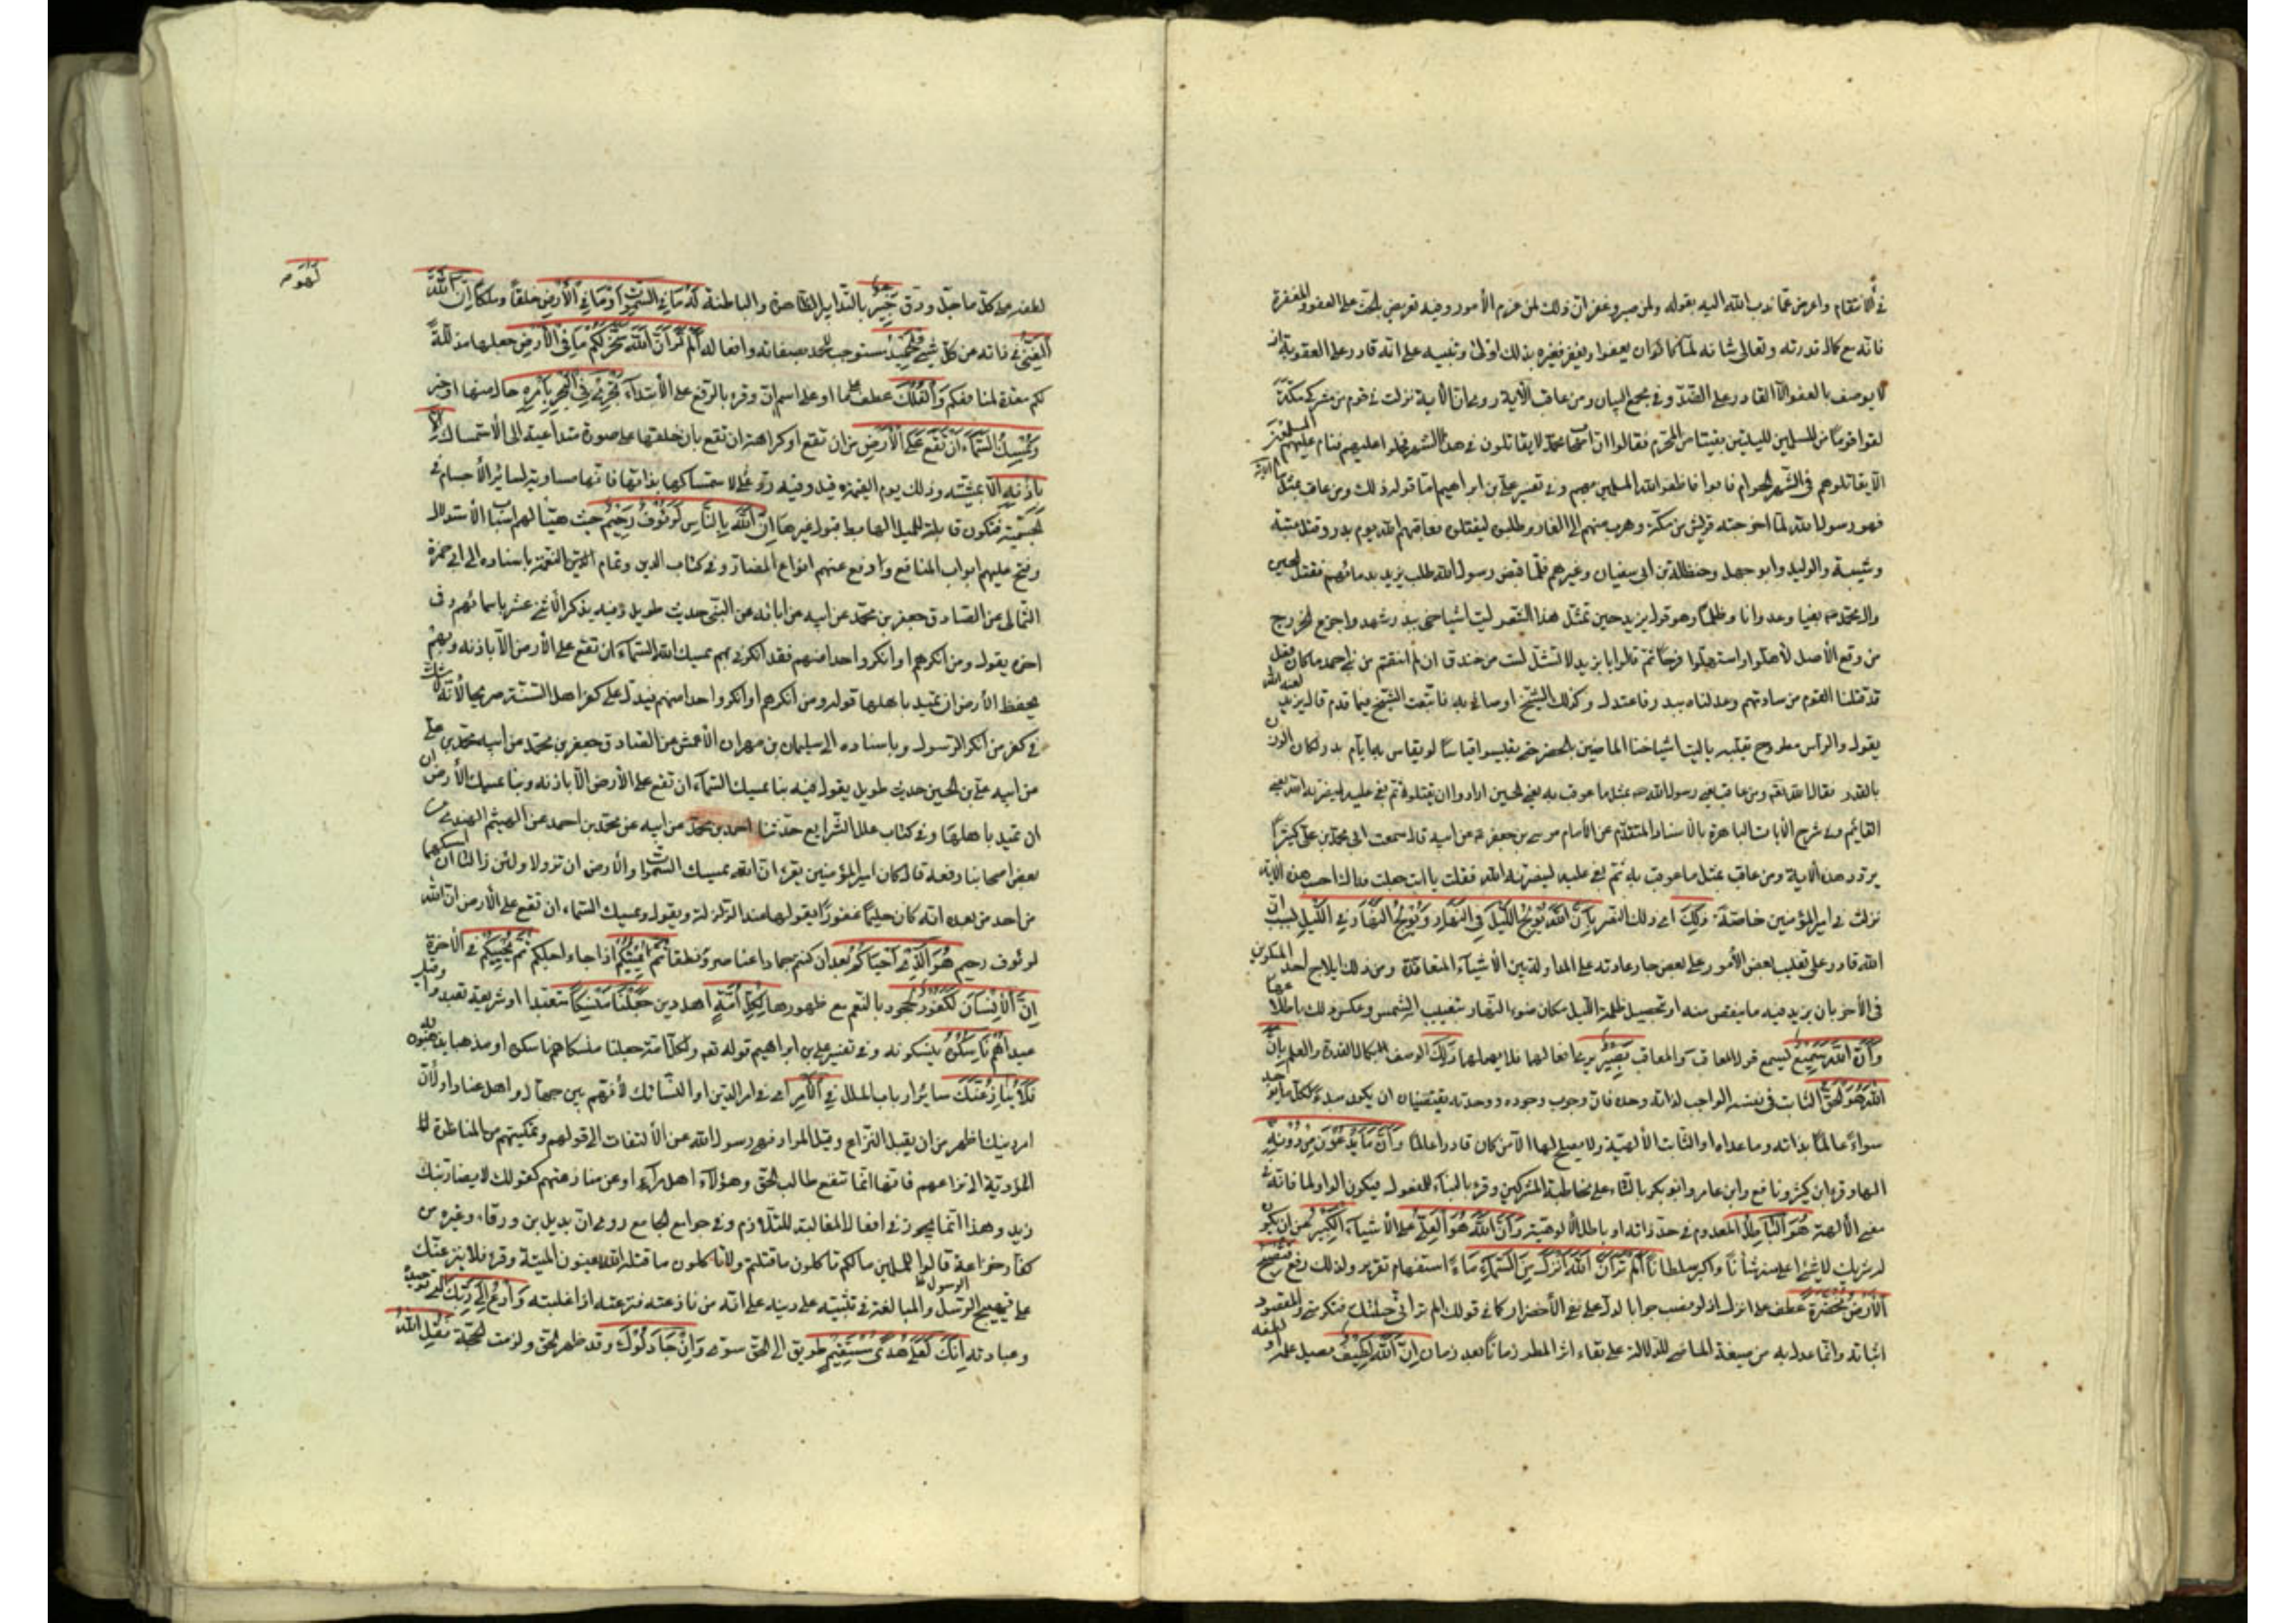 في الانتقام واعرض عما ندب الله اليه بقوله ولمن صبر وغفر ان ذلك لمن عزم الأمور وفيه تعريض بالحث على العفو والمغفرة
فانه مع كمال قدرته وتعالى شانه لما كان يعفوا ويغفر فغيره بذلك اولى وتنبيه على انه قادر على العقوبة اذ
لا يوصف بالعفو الا القادر على الضد وفي مجمع البيان ومن عاقب الآية روي ان الآية نزلت في قوم من مشركي مكة
لقوا قوما من المسلمين لليلتين بقيتا من المحرم فقالوا ان اصحاب محمد لا يقاتلون في هذا الشهر فحملوا عليهم فناشدهم المسلمون
الا يقاتلوهم في الشهر الحرام فابوا فاظفر الله المسلمين بهم وفي تفسير علي بن ابراهيم اما قوله ذلك ومن عاقب بمثل
فهو رسول الله لما اخرجته قريش من مكة وهرب منهم الى الغار وطلبوه ليقتلوه فعاقبهم الله يوم بدر وقتل عتبة
وشيبة والوليد وابو جهل وحنظلة بن ابي سفيان وغيرهم فلما قبض رسول الله طلب يزيد بدمائهم فقتل الحسين
وال محمد بغيا وعدوانا وظلما وهو قول يزيد حين تمثل هذا الشعر ليت اشياخي ببدر شهدوا جزع الخزرج
من وقع الأسل لأهلوا واستهلوا فرحا ثم قالوا يا يزيد لا تشل لست من خندف ان لم انتقم من بني احمد ما كان فعل
قد قتلنا القوم من ساداتهم وعدلناه ببدر فاعتدل وكذلك الشيخ اوصاني به فاتبعت الشيخ فيما قد قال يزيد لعنه الله
يقول والراس مطروح يقلبه يا ليت اشياخنا الماضين بالحضر حتى يقيسوا قياسا لو يقاس به ايام بدر لكان الوزن
بالقدر فقال الله تعالى ومن عاقب يعني رسول الله بمثل ما عوقب به يعني الحسين ارادوا ان يقتلوه ثم بغي عليه لينصرنه الله يعني
القائم وفي شرح الآيات الباهرة بالاسناد المتقدم عن الأمام موسى بن جعفر عن ابيه قال سمعت ابي محمد بن علي كثيرا
يردد هذه الآية ومن عاقب بمثل ما عوقب به ثم بغي عليه لينصرنه الله فقلت يا ابت جعلت فداك احسب هذه الآية
نزلت في امير المؤمنين خاصة ذلك اي ذلك النصر بان الله يولج الليل في النهار ويولج النهار في الليل بسبب ان
الله قادر على تغليب بعض الأمور على بعض جار عادته على المداولة بين الأشياء المتعاندة ومن ذلك ايلاج احد الملوين
في الآخر بان يزيد فيه ما ينقص منه او تحصيل ظلمة الليل مكان ضوء النهار بتغييب الشمس وعكس ذلك باطلاعها
وان الله سميع يسمع قول المعاقب والمعاقب بصير يرى افعالهما فلا يهملهما ذلك الوصف بكمال القدرة والعلم بان
الله هو الحق الثابت في نفسه الواجب لذاته وحده فان وجوب وجوده ووحدته يقتضيان ان يكون مبدء لكل ما يوجد
سواه عالما بذاته وما عداه او الثابت الألهية ولا يصلح لها الا من كان قادرا عالما وان ما يدعون من دونه
الها وقرء ابن كثير ونافع وابن عامر وابو بكر بالتاء على مخاطبة المشركين وقرء بالبناء للمفعول فيكون الواو لما فانه في
معنى الآلهة هو الباطل المعدوم في حد ذاته او باطل الألوهية وان الله هو العلي على الأشياء الكبير عن ان يكون
له شريك لا شيء اعلى منه شأنا واكبر سلطانا الم تر ان الله انزل من السماء ماء استفهام تقرير ولذلك رفع فتصبح
الأرض مخضرة عطف على انزل اذ لو نصب جوابا لدل على نفي الأخضرار كما في قولك الم تر اني جئتك فتكرمني والمقصود
اثباته وانما عدل به من صيغة الماضي للدلالة على بقاء اثر المطر زمانا بعد زمان ان الله لطيف يصل علمه او لطفه
لطفه الى كل ما جل ودق خبير بالتدابير الظاهرة والباطنة له ما في السموات وما في الأرض خلقا وملكا وان الله
لهو
الغني في ذاته عن كل شيء الحميد المستوجب للحمد بصفاته وافعاله الم تر ان الله سخر لكم ما في الأرض جعلها مذللة
لكم معدة لمنافعكم والفلك عطف على ما او على اسم ان وقرء بالرفع على الأبتداء تجري في البحر بامره حال منها او خبر
ويمسك السماء ان تقع على الأرض من ان تقع او كراهة ان تقع بان خلقها على صورة متداعية الى الأستمساك الا
باذنه الا بمشيته وذلك يوم القيمة وفيه رد على لاستمساكها بذاتها فانها مساوية لسائر الأجسام في
الجسمية فتكون قابلة للميل الهابط قبول غيرها ان الله بالناس لرؤف رحيم حيث هيأ لهم اسباب الأستدلال
وفتح عليهم ابواب المنافع ودفع عنهم انواع المضار وفي كتاب كمال الدين وتمام النعمة باسناده الى ابي حمزة
الثمالي عن الصادق جعفر بن محمد عن ابيه عن ابائه عن النبي حديث طويل وفيه يذكر الاثنى عشر باسمائهم وفي
اخره يقول ومن انكرهم او انكر واحدا منهم فقد انكرني بهم يمسك الله السماء ان تقع على الأرض الا باذنه وبهم
يحفظ الأرض ان تميد باهلها قوله ومن انكرهم او انكر واحدا منهم فيدل على كفر اهل السنة صريحا لأنه لا شك
في كفر من انكر الرسول وباسناده الى سليمان بن مهران الأعمش عن الصادق جعفر بن محمد عن ابيه محمد بن علي
عن ابيه علي بن الحسين حديث طويل يقول فيه بنا يمسك السماء ان تقع على الأرض الا باذنه وبنا يمسك الأرض ان
ان تميد باهلها وفي كتاب علل الشرايع حدثنا احمد بن محمد عن ابيه عن محمد بن احمد عن الهيثم النهدي عن
بعض اصحابنا رفعه قال كان امير المؤمنين يقرء ان الله يمسك السموات والأرض ان تزولا ولئن زالتا ان امسكهما
من احد من بعده انه كان حليما غفورا يقولها عند الزلزلة ويقول ويمسك السماء ان تقع على الأرض ان الله
لرؤف رحيم هو الذي احياكم بعد ان كنتم جمادا عناصر ونطفا ثم يميتكم اذا جاء اجلكم ثم يحييكم في الآخرة
ان الأنسان لكفور لجحود بالنعم مع ظهورها لكل امة اهل دين جعلنا منسكا متعبدا او شريعة تعبدوا وقيل
عيدا هم ناسكوه ينسكونه وفي تفسير علي بن ابراهيم قوله تعالى ولكل امة جعلنا منسكا هم ناسكوه او مذهبا يذهبون به
فلا ينازعنك سائر ارباب الملل في الأمر اي في امر الدين او النسائك لأنهم بين جهال واهل عناد او لان
امر دينك اظهر من ان يقبل النزاع وقيل المراد نهي رسول الله عن الألتفات الى قولهم وتمكينهم من المناظرة
المؤدية الى نزاعهم فانها انما تنفع طالب الحق وهؤلاء اهل مراء او عن منازعتهم كقولك لا يضاربنك
زيد وهذا انما يجوز في افعال المغالبة للتلازم وفي جوامع الجامع روي ان بديل بن ورقاء وغيره من
كفار خزاعة قالوا للمسلمين ما لكم تأكلون ما قتلتم ولا تأكلون ما قتله الله يعنون الميتة وقرء فلا ينزعنك
على تهييج الرسول والمبالغة في تثبيته على دينه على انه من نازعته فنزعته اذا غلبته وادع الى ربك الى توحيده
وعبادته انك لعلى هدى مستقيم طريق الى الحق سوي وان جادلوك وقد ظهر الحق ولزمت الحجة فقل الله